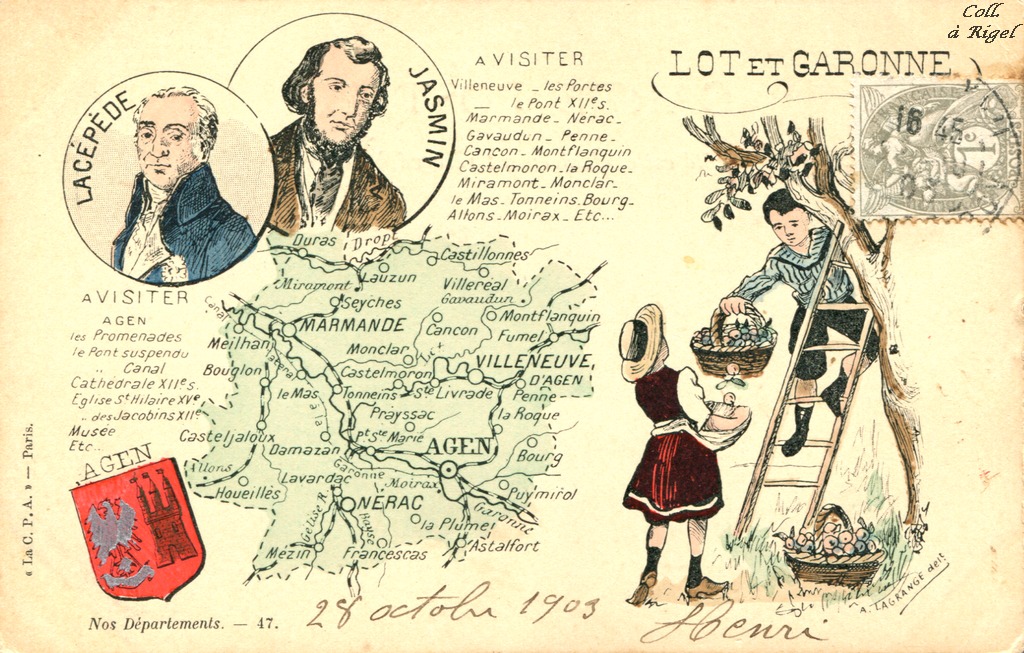 Coll.
à Rigel
LOT ET GARONNE
LACÉPÈDE
JASMIN
A VISITER
Villeneuve _ les Portes
_ le Pont XIIe s.
Marmande _ Nérac _
Gavaudun _ Penne _
Cancon _ Montflanquin
Castelmoron _ la Roque _
Miramont _ Monclar _
le Mas _ Tonneins _ Bourg _
Allons _ Moirax _ Etc...
16
45
1
A VISITER
AGEN
les Promenades
le Pont suspendu
" Canal
Cathédrale XIIe s.
Eglise St Hilaire XVe
.. des Jacobins XIIe
Musée
Etc...
AGEN
Duras
Drop
Castillonnes
Lauzun
Miramont
Villeréal
Gavaudun
Seyches
Canal
MARMANDE
Cancon
Montflanquin
Fumel
Meilhan
Monclar
Lot
VILLENEUVE
D'AGEN
latéral
Bouglon
Castelmoron
le Mas
Tonneins
Ste Livrade
Penne
à la
Prayssac
la Roque
Casteljaloux
Pt Ste Marie
AGEN
Damazan
Bourg
Garonne
Allons
Lavardac
Moirax
Houeillès
Puymirol
NÉRAC
Garonne
Gélise R.
Bayse
la Plume
Mezin
Francescas
Astalfort
A. LAGRANGE delt
« La C. P. A. » — Paris.
Nos Départements. — 47.
28 octobre 1903
Henri